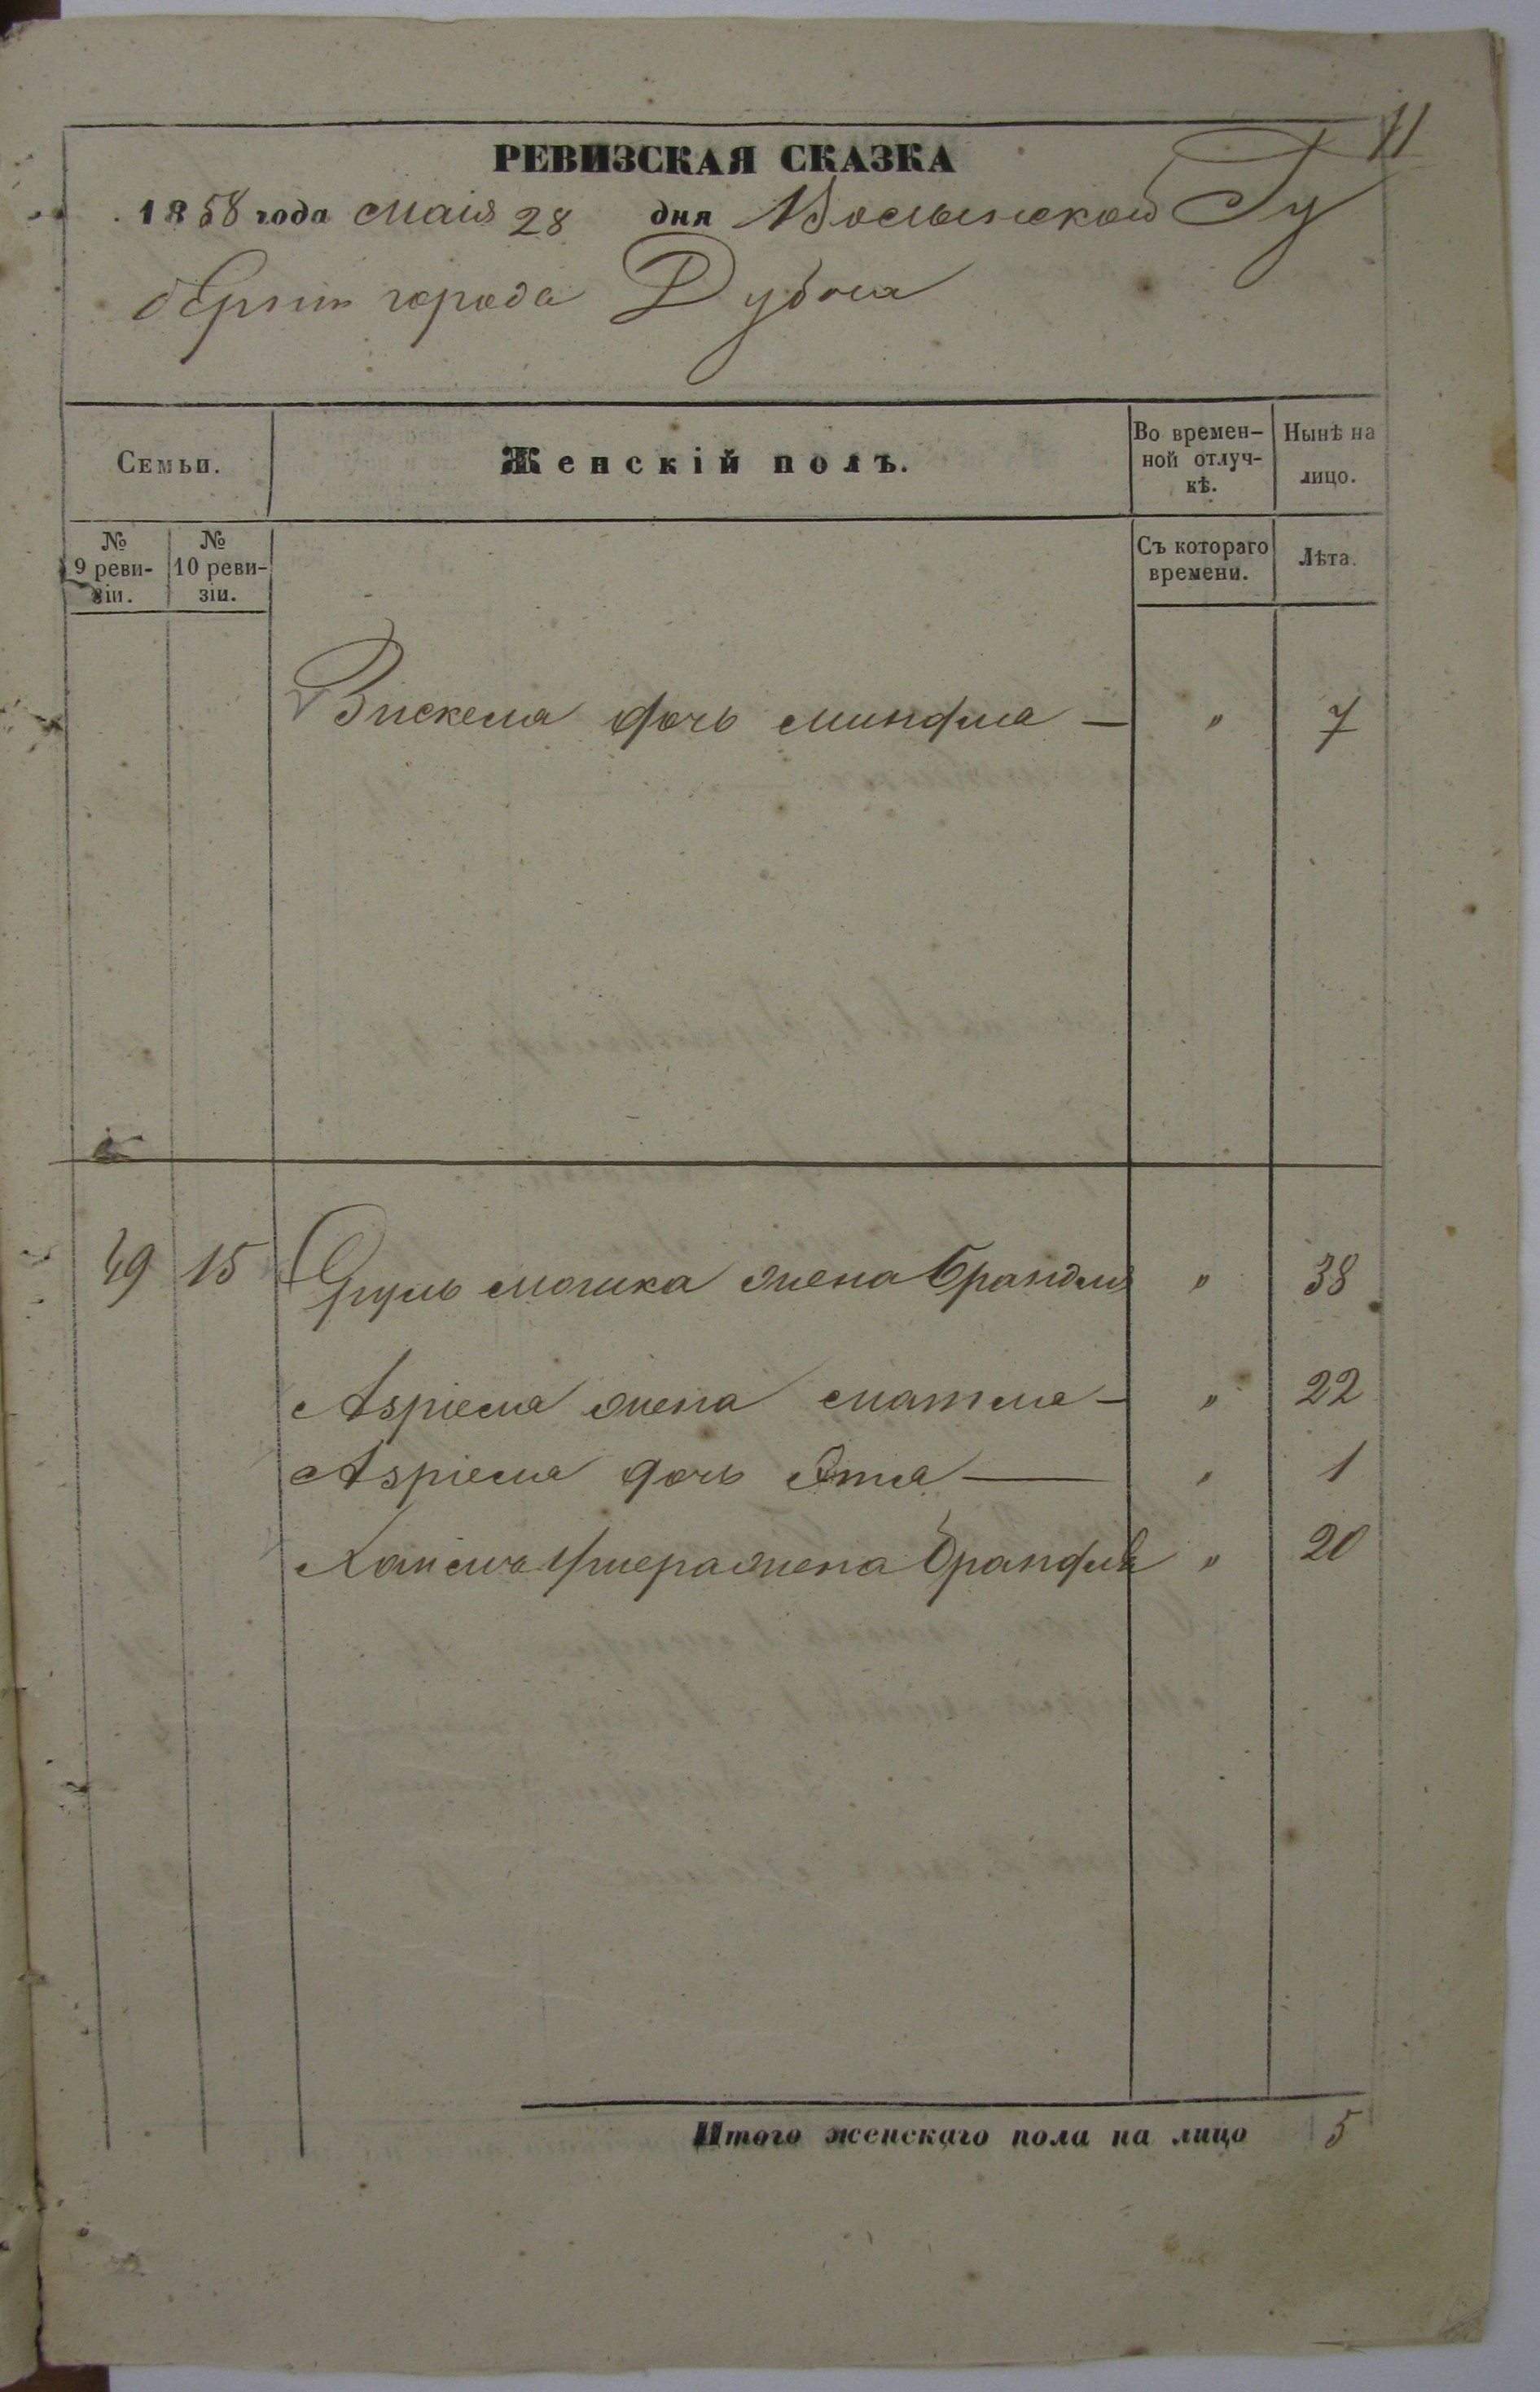 11
РЕВИЗСКАЯ СКАЗКА
1858 года Маія 28 дня Волынской Гу
берніи города Дубна
Семьи.
Женскій полъ.
Во времен-
ной отлуч-
кѣ.
Нынѣ на
лицо.
№
9 реви-
зіи.
№
10 реви-
зіи.
Съ котораго
времени.
Лѣта.
дочь Миндля — " 7
49 15 Сруль Мошка жена Брандля " 38
Азріела жена Матля — " 22
Азріела дочь Ята — " 1
жена Брандля " 20
Итого женскаго пола на лицо 5